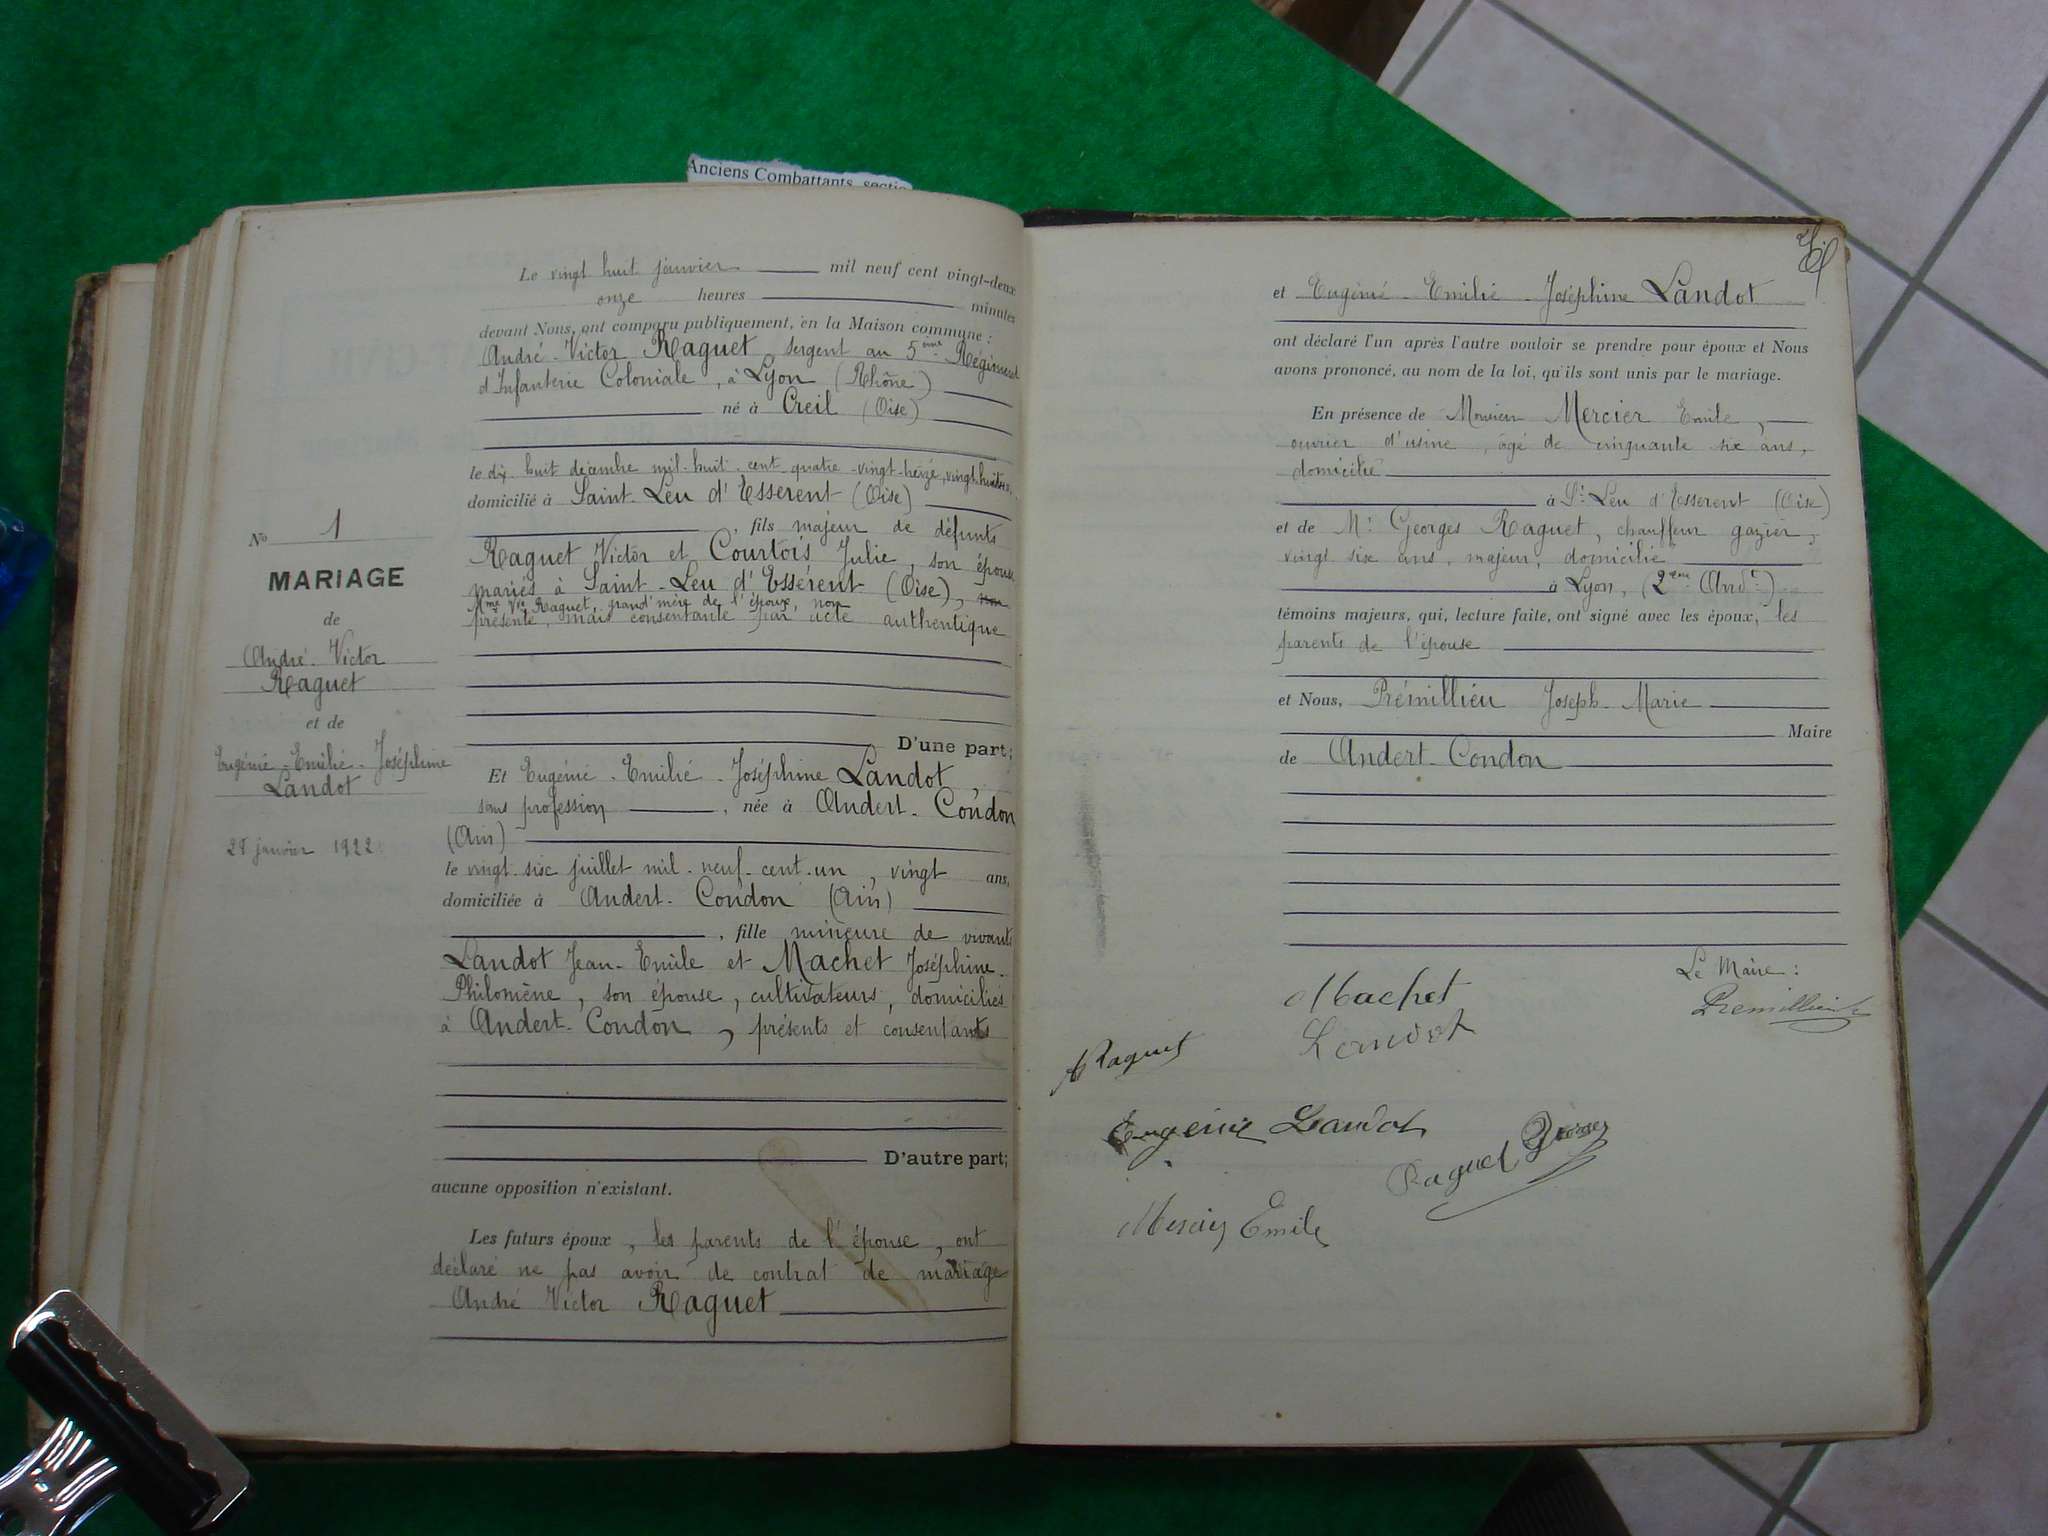 Anciens Combattants, sectio
Le vingt huit janvier mil neuf cent vingt-deux
onze heures minutes
devant Nous, ont comparu publiquement, en la Maison commune :
André-Victor Raguet sergent au 5ème Régiment
d'Infanterie Coloniale, à Lyon (Rhône)
né à Creil (Oise)
le dix-huit décembre mil-huit-cent-quatre-vingt-treize, vingt-huit ans,
domicilié à Saint-Leu d'Esserent (Oise)
, fils majeur de défunts
Raguet Victor et Courtois Julie, son épouse
mariés à Saint-Leu d'Essérent (Oise), non
Mme Vve Raguet, grand'mère de l'époux, non
présente, mais consentante par acte authentique
D'une part;
Et Eugénie-Emilie-Joséphine Landot
sans profession , née à Andert-Condon
(Ain)
le vingt-six juillet mil-neuf-cent-un, vingt ans,
domiciliée à Andert-Condon (Ain)
, fille mineure de vivants
Landot Jean-Emile et Machet Joséphine-
Philomène, son épouse, cultivateurs, domiciliés
à Andert-Condon, présents et consentants
D'autre part;
aucune opposition n'existant.
Les futurs époux, les parents de l'épouse, ont
déclaré ne pas avoir de contrat de mariage
André Victor Raguet
No 1
MARIAGE
de
André-Victor
Raguet
et de
Eugénie-Emilie-Joséphine
Landot
28 janvier 1922
et Eugénie-Emilie-Joséphine Landot
ont déclaré l'un après l'autre vouloir se prendre pour époux et Nous
avons prononcé, au nom de la loi, qu'ils sont unis par le mariage.
En présence de Monsieur Mercier Emile,
ouvrier d'usine, âgé de cinquante six ans,
domicilié
à St Leu d'Esserent (Oise)
et de Mr Georges Raguet, chauffeur gazier,
vingt six ans, majeur, domicilié
à Lyon, (2ème Andt)
témoins majeurs, qui, lecture faite, ont signé avec les époux, les
parents de l'épouse
et Nous, Prémillieu Joseph-Marie
Maire
de Andert-Condon
Le Maire :
Premillieu
Machet
Landot
A Raguet
Eugénie Landot
Raguet Georges
Mercier Emile